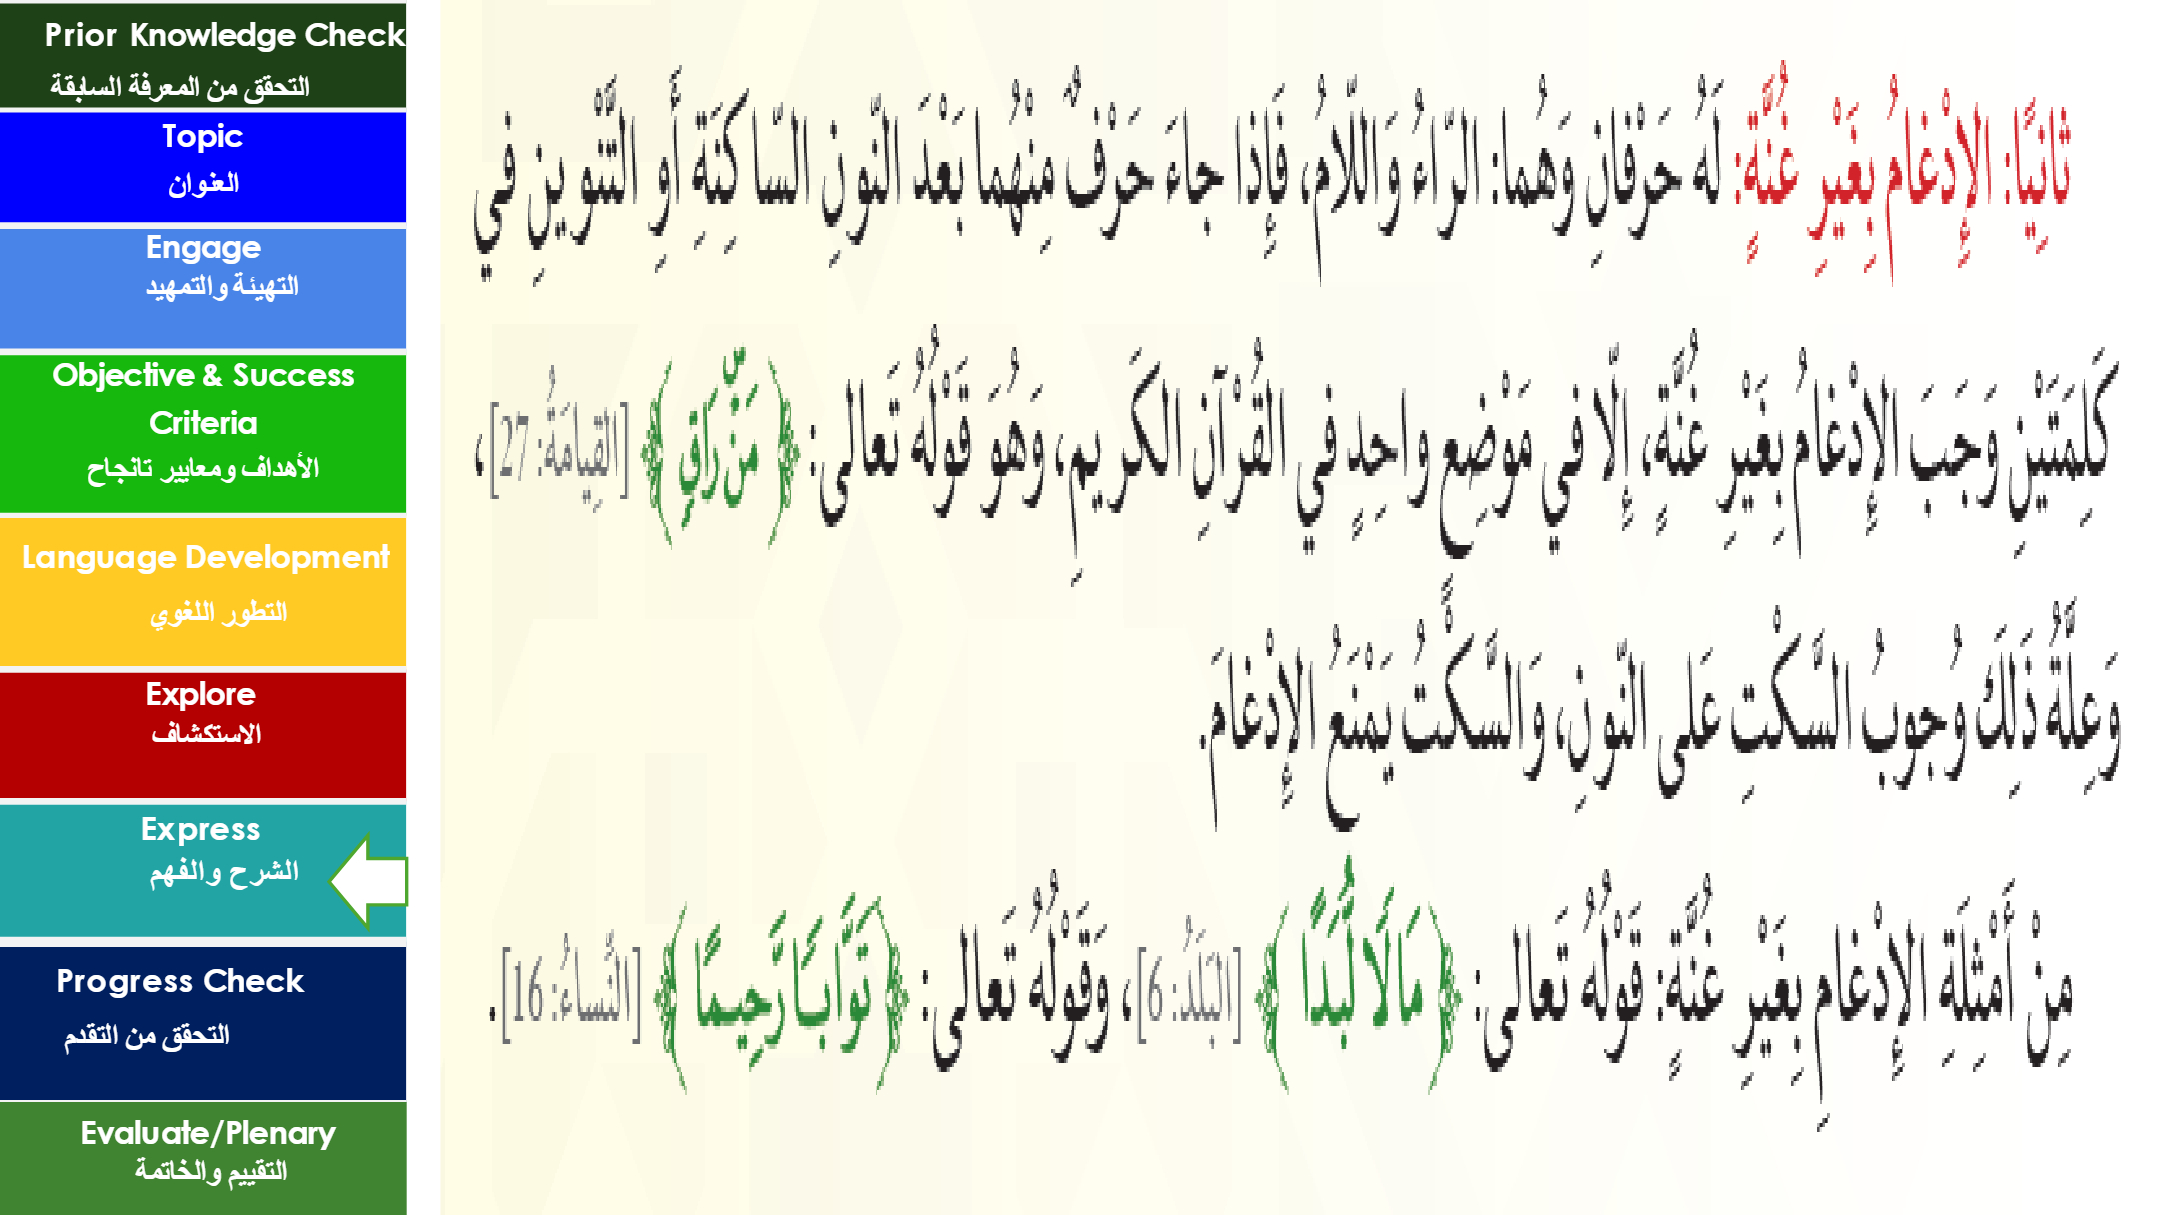 Prior Knowledge Check
التحقق من المعرفة السابقة
Topic
العنوان
Engage
التهيئة والتمهيد
Objective & Success
Criteria
الأهداف ومعايير تانجاح
Language Development
التطور اللغوي
Explore
الاستكشاف
Express
الشرح والفهم
Progress Check
التحقق من التقدم
Evaluate/Plenary
التقييم والخاتمة
ثانِيًا: الإِدْغامُ بِغَيْرِ غُنَّةٍ: لَهُ حَرْفانِ وَهُما: الرّاءُ وَاللّامُ، فَإِذا جاءَ حَرْفٌ مِنْهُما بَعْدَ النّونِ السّاكِنَةِ أَوِ التَّنْوينِ في
كَلِمَتَيْنِ وَجَبَ الإِدْغامُ بِغَيْرِ غُنَّةٍ، إِلّا في مَوْضِعٍ واحِدٍ في القُرْآنِ الكَريمِ، وَهُوَ قَوْلُهُ تَعالى: ﴿مَنْ ۜ رَاقٍ﴾ [القِيامَةُ: 27]،
وَعِلَّةُ ذَلِكَ وُجوبُ السَّكْتِ عَلى النّونِ، وَالسَّكْتُ يَمْنَعُ الإِدْغامَ.
مِنْ أَمْثِلَةِ الإِدْغامِ بِغَيْرِ غُنَّةٍ: قَوْلُهُ تَعالى: ﴿مَالًا لُّبَدًا﴾ [البَلَدُ: 6]، وَقَوْلُهُ تَعالى: ﴿تَوَّابًا رَّحِيمًا﴾ [النِّساءُ: 16].